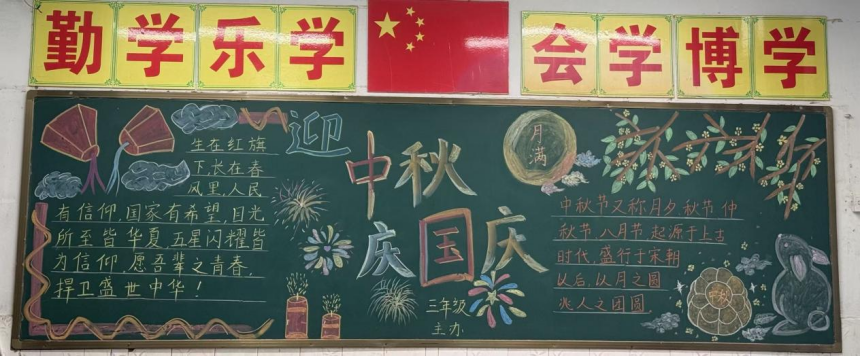 勤学乐学
会学博学
迎
中秋
庆国庆
生在红旗
下长在春
风里,人民
有信仰,国家有希望,目光
所至皆华夏,五星闪耀皆
为信仰,愿吾辈之青春,
捍卫盛世中华!
三年级
主办
月满
中秋节又称月夕秋节仲
秋节八月节起源于上古
时代,盛行于宋朝
以后,以月之圆
兆人之团圆
中秋